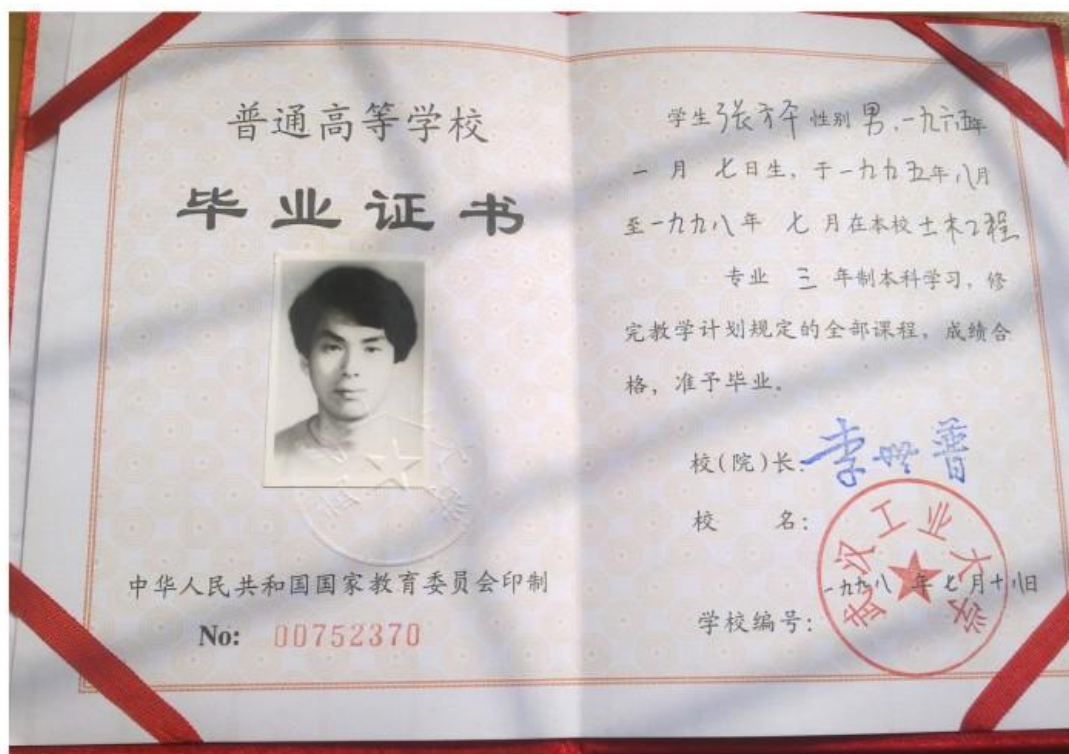 普通高等学校
毕业证书
中华人民共和国国家教育委员会印制
No: 00752370
学生张方 性别男，一九六五年
一月 七日生，于一九九五年八月
至一九九八年 七月在本校土木工程
专业 三 年制本科学习，修
完教学计划规定的全部课程，成绩合
格，准予毕业。
校（院）长：李世普
校 名：
武汉工业大学
一九九八年七月十八日
学校编号：